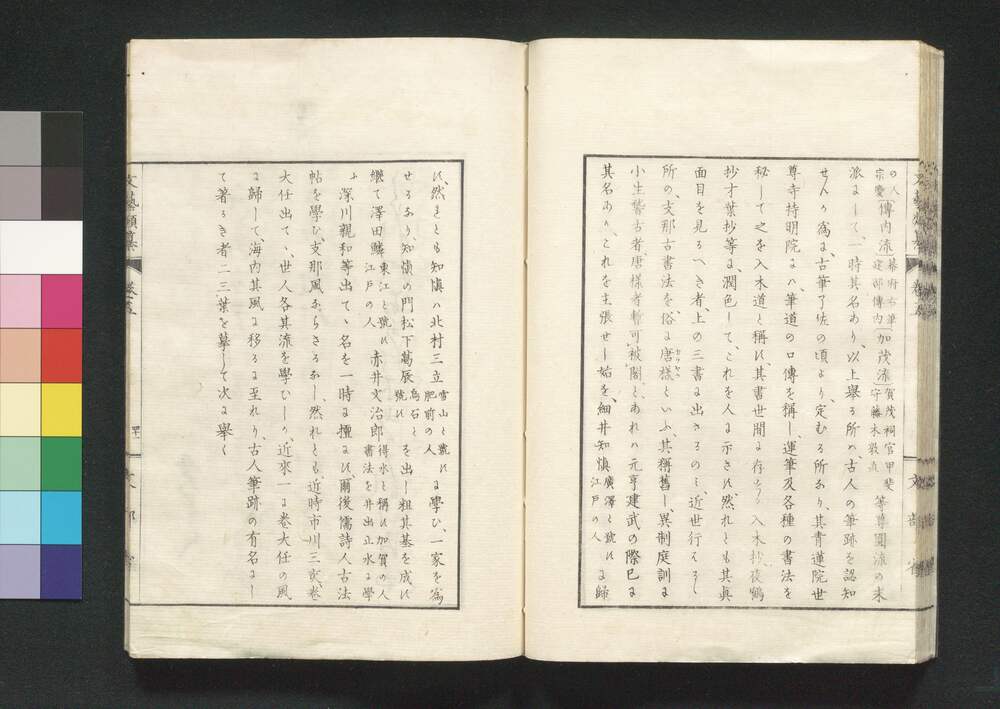 の人
宗慶「傳内流」幕府右筆建部傳内「加茂流」賀茂祠官甲斐守藤木敦直等尊圓流の末
派にして、一時其名あり、以上擧る所ハ、古人の筆跡を認知
せんか爲に、古筆了佐の頃より、定むる所なり、其青蓮院世
尊寺持明院にハ、筆道の口傳を稱し、運筆及各種の書法を
秘して之を入木道と稱す、其書世間に存するもの入木抄、夜鶴
抄才葉抄等に、潤色して、これを人に示さす、然れとも其眞
面目を見るへき者、上の三書に出さるのミ、近世行ハるゝ
所の、支那古書法を、俗に唐様といふ、其稱舊し、異制庭訓に
小生誓古者唐様者暫可被閣、とあれハ元亨建武の際已に
其名あり、これを主張せし始を、細井知愼廣澤と號す江戸の人に歸
す、然れとも知愼ハ北村三立雪山と號す肥前の人に學ひ、一家を爲
せるなり知愼の門松下葛辰烏石と號すを出し粗其基を成す
繼て澤田鱗東江と號す江戸の人赤井文治郎得水と稱す加賀の人書法を井出正水に學
ふ深川親和等出て、名を一時に擅にす、爾後儒詩人古法
帖を學ひ、支那風ならさるなし、然れとも、近時市川三亥、卷
大任出て、世人各其流を學ひしか、近來一に卷大任の風
に歸して、海内其風に移るに至れり、古人筆跡の有名にし
て著き者二三葉を摹して次に擧く
文藝類纂 卷五
四十一
文部省